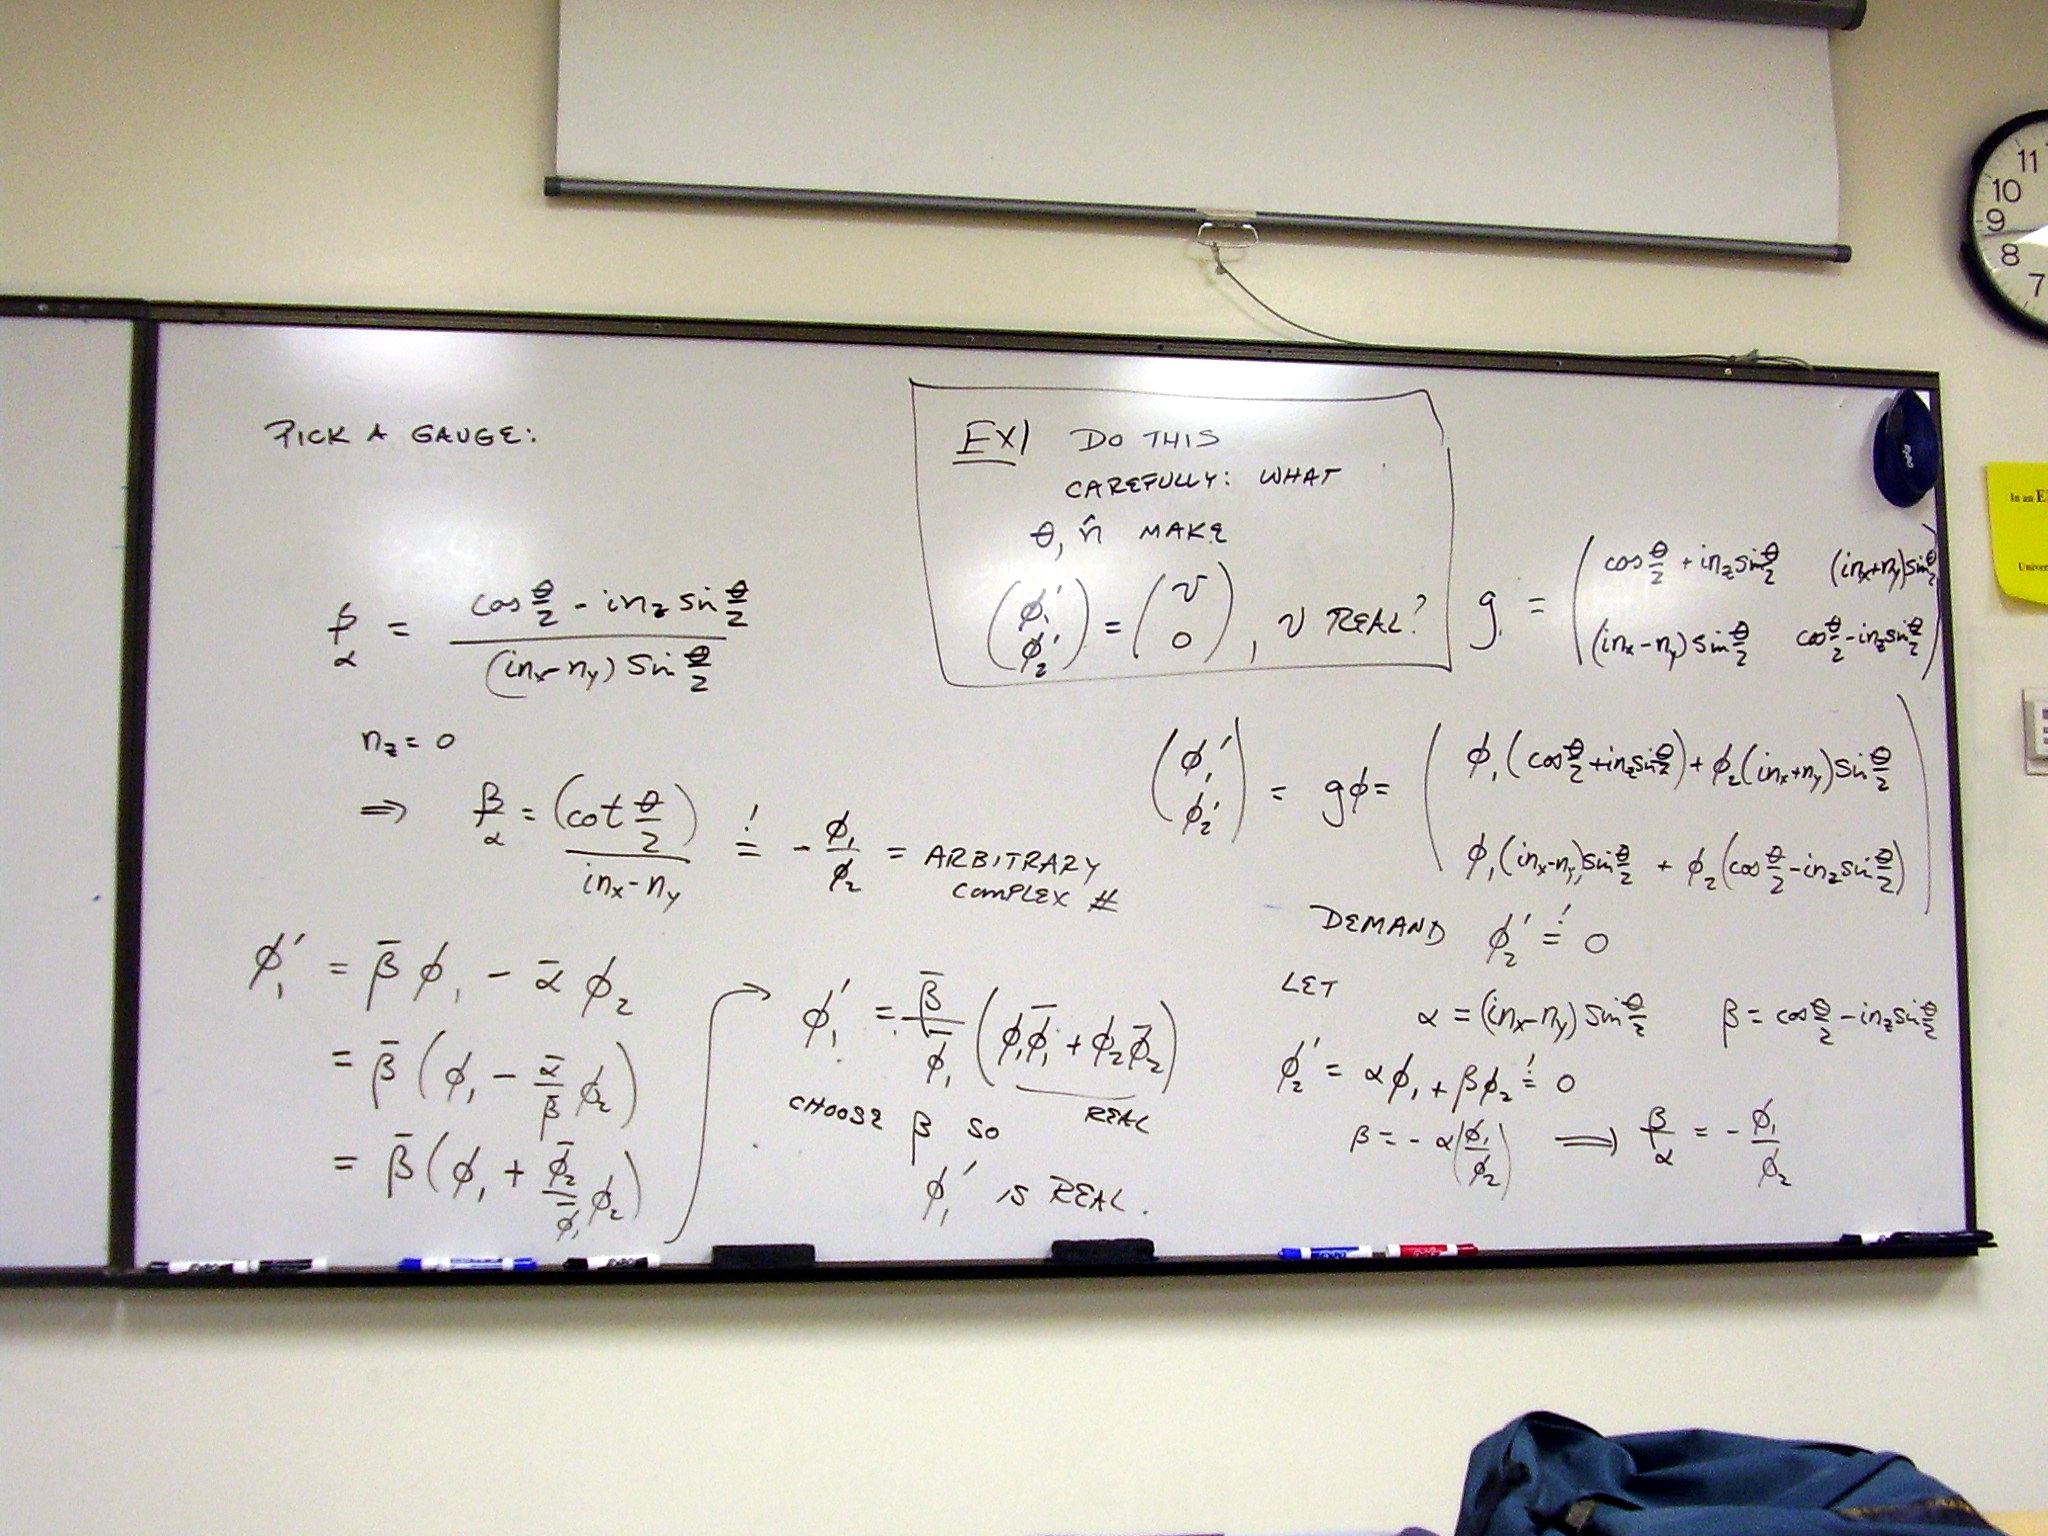 PICK A GAUGE:
β/α = (cos θ/2 - i n_z sin θ/2) / ((i n_x - n_y) sin θ/2)
n_z = 0
⇒ β/α = (cot θ/2) / (i n_x - n_y) =! - ϕ₁/ϕ₂ = ARBITRARY
COMPLEX #
ϕ₁' = β̄ ϕ₁ - ᾱ ϕ₂
= β̄ (ϕ₁ - ᾱ/β̄ ϕ₂)
= β̄ (ϕ₁ + ϕ̄₂/ϕ̄₁ ϕ₂)
ϕ₁' = β̄/ϕ̄₁ (ϕ₁ϕ̄₁ + ϕ₂ϕ̄₂)
REAL
CHOOSE β SO
ϕ₁' IS REAL.
EX) DO THIS
CAREFULLY: WHAT
θ, n̂ MAKE
(ϕ₁' ϕ₂') = (v 0), v REAL?
g = (cos θ/2 + i n_z sin θ/2 (i n_x + n_y) sin θ/2
(i n_x - n_y) sin θ/2 cos θ/2 - i n_z sin θ/2)
(ϕ₁' ϕ₂') = gϕ = (ϕ₁(cos θ/2 + i n_z sin θ/2) + ϕ₂(i n_x + n_y) sin θ/2
ϕ₁(i n_x - n_y) sin θ/2 + ϕ₂(cos θ/2 - i n_z sin θ/2))
DEMAND ϕ₂' =! 0
LET
α = (i n_x - n_y) sin θ/2 β = cos θ/2 - i n_z sin θ/2
ϕ₂' = αϕ₁ + βϕ₂ =! 0
β = - α(ϕ₁/ϕ₂) ⟹ β/α = - ϕ₁/ϕ₂
11
10
9
8
7
In an
Univer